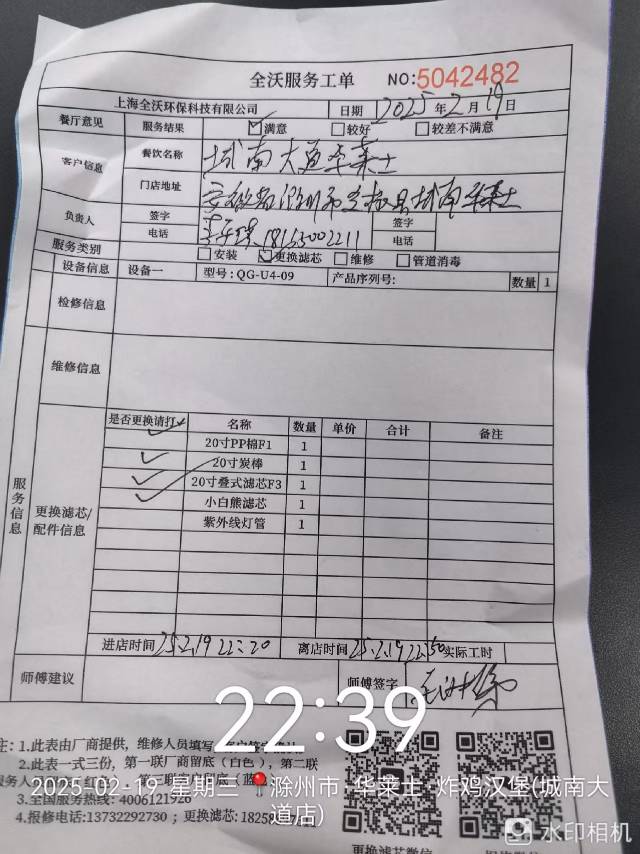 全沃服务工单 NO:5042482
上海全沃环保科技有限公司 日期 2025年2月19日
餐厅意见 服务结果 满意 较好 较差不满意
客户信息 餐饮名称 城南大道华莱士
门店地址 安徽省滁州市全椒县城南华莱士
负责人 签字 签字
电话 18155002211 电话
服务类别 安装 更换滤芯 维修 管道消毒
设备信息 设备一 型号:QG-U4-09 产品序列号: 数量 1
检修信息
维修信息
服务信息
更换滤芯/配件信息
是否更换请打✓ 名称 数量 单价 合计 备注
20寸PP棉F1 1
20寸炭棒 1
20寸叠式滤芯F3 1
小白熊滤芯 1
紫外线灯管 1
进店时间 25.2.19 22:20 离店时间 25.2.19 22:50 实际工时
师傅建议 师傅签字
22:39
注:1.此表由厂商提供,维修人员填写
2.此表一式三份,第一联厂商留底(白色),第二联
2025-02-19 星期三 滁州市·华莱士·炸鸡汉堡(城南大道店)
3.全国服务热线:4006121926
4.报修电话:13732292730 ; 更换滤芯:18258
更换滤芯微信
水印相机